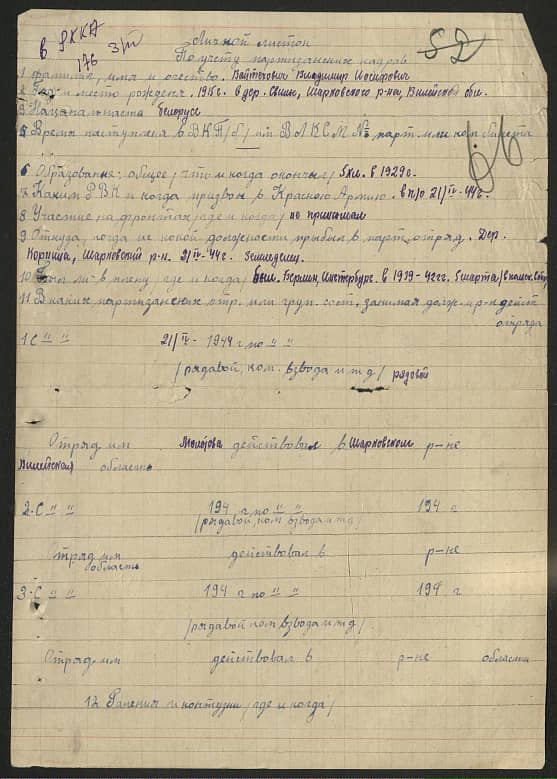 в РККА
176 3/VII
52
Личной листок
По учету партизанских кадров
1 Фамилия, имя и отчество. Войтехович Владимир Иосифович
2 Год и место рождения. 1915 г. в дер. Свилы, Шарковского р-на, Вилейской обл.
3 Национальность белорусс
5 Время поступления в ВКП/б/ или ВЛКСМ № парт. или ком. билета
6 Образование: общее / что и когда окончил / 5 кл. в 1929 г.
7 Каким РВК и когда призван в Красною Армию. в п/о 21/IV-44 г.
8 Участие на фронтах / где и когда / не принимал
9 Откуда, когда и с какой должности прибыл в парт. отряд. Дер.
Шарковский р-н. 21/IV-44 г. Земледелец.
10 Был ли в плену, где и когда / был. Берлин, Инстербург. в 1939-42 гг. 5 марта
11 В каких партизанских отр. или груп. сост., занимая долж. и р-н дейст
отряда
1 С " " 21/IV - 1944 г по " "
/рядавой, ком. взвода и т д/ рядовой
Отряд им Молотова действовал в Шарковском р-не
Вилейская область
2. С " " 194 г по " " 194 г
/рядавой, ком взвода и т д/
Отряд им действовал в р-не
область
3. С " " 194 г по " " 194 г
/рядавой ком взвода и т д/
Отряд им действовал в р-не области
12 Ранения и контузии / где и когда /